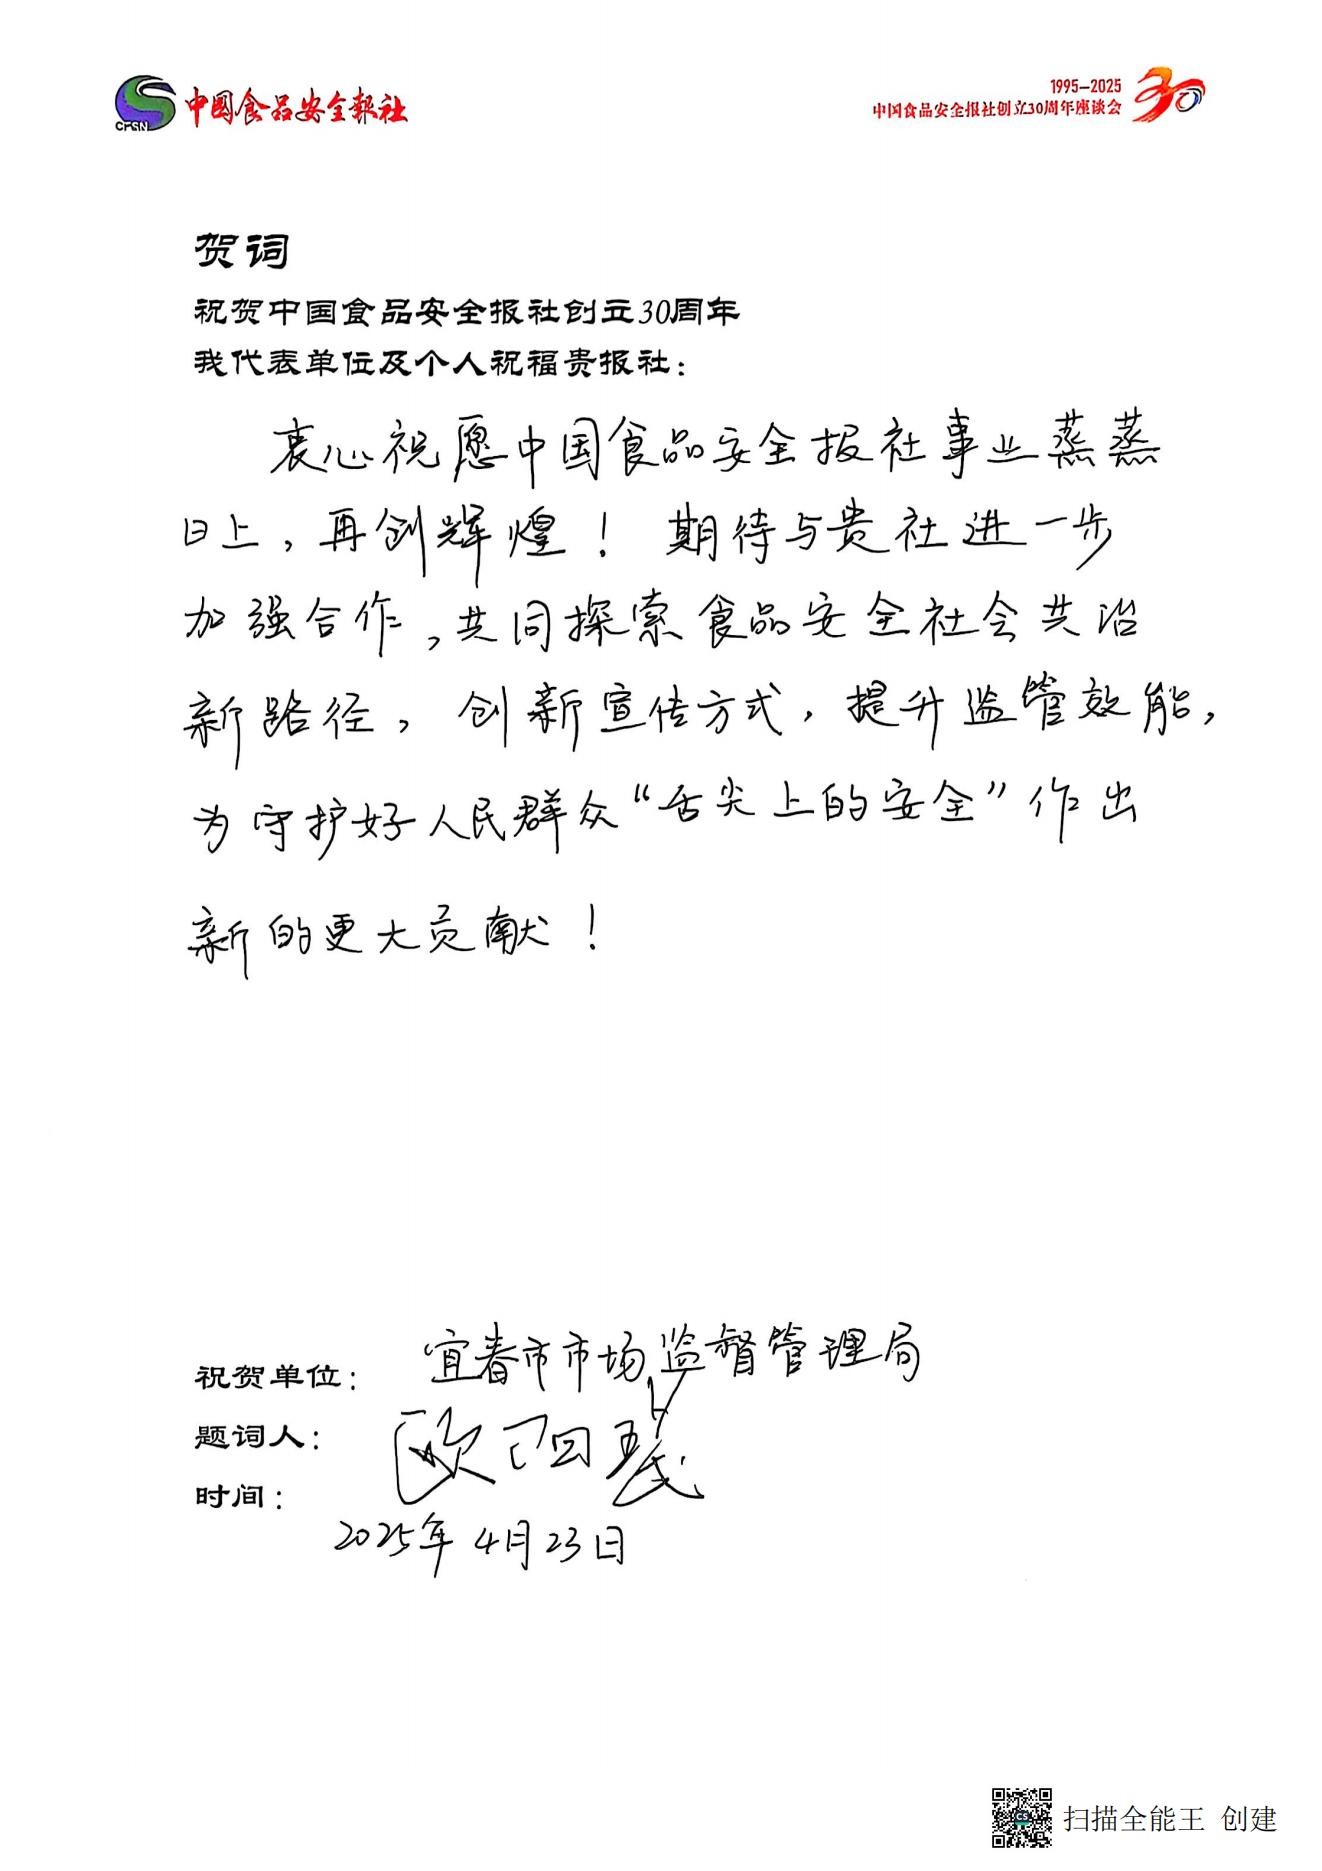 CFSN
中国食品安全報社
1995—2025
中国食品安全报社创立30周年座谈会
30
贺词
祝贺中国食品安全报社创立30周年
我代表单位及个人祝福贵报社：
衷心祝愿中国食品安全报社事业蒸蒸
日上，再创辉煌！期待与贵社进一步
加强合作，共同探索食品安全社会共治
新路径，创新宣传方式，提升监管效能，
为守护好人民群众“舌尖上的安全”作出
新的更大贡献！
祝贺单位：宜春市市场监督管理局
题词人：欧阳
时间：
2025年4月23日
CS
扫描全能王 创建